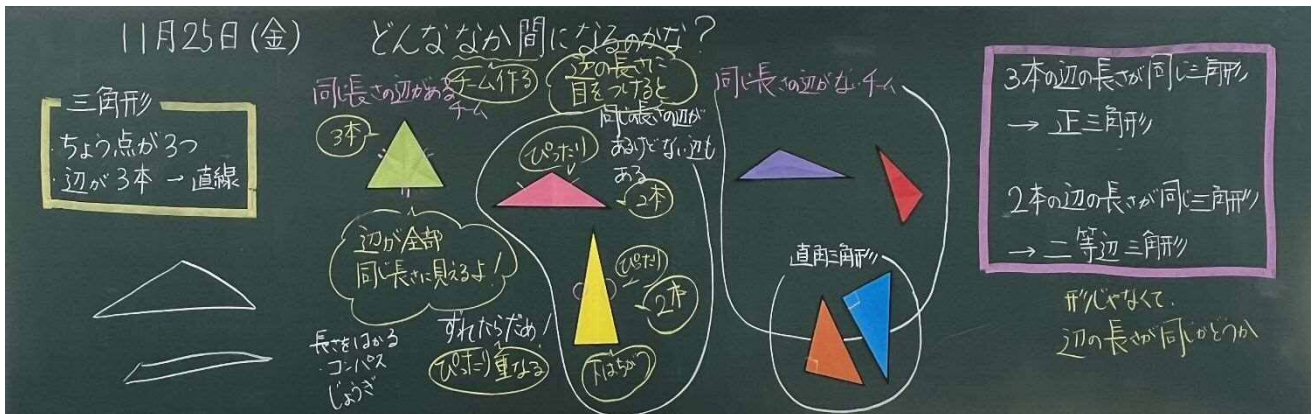 11月25日(金)
どんななか間になるのかな?
三角形
・ちょう点が3つ
・辺が3本 → 直線
同じ長さの辺がある
チーム
チーム作る
辺の長さに
目をつけると
3本
辺が全部
同じ長さに見えるよ!
長さをはかる
・コンパス
じょうぎ
ずれたらだめ!
ぴったり重なる
同じの長さの辺が
あるけどない辺も
ある
ぴったり
2本
ぴったり
2本
下はちがう
同じ長さの辺がないチーム
直角三角形
3本の辺の長さが同じ三角形
→ 正三角形
2本の辺の長さが同じ三角形
→ 二等辺三角形
形じゃなくて、
辺の長さが同じかどうか